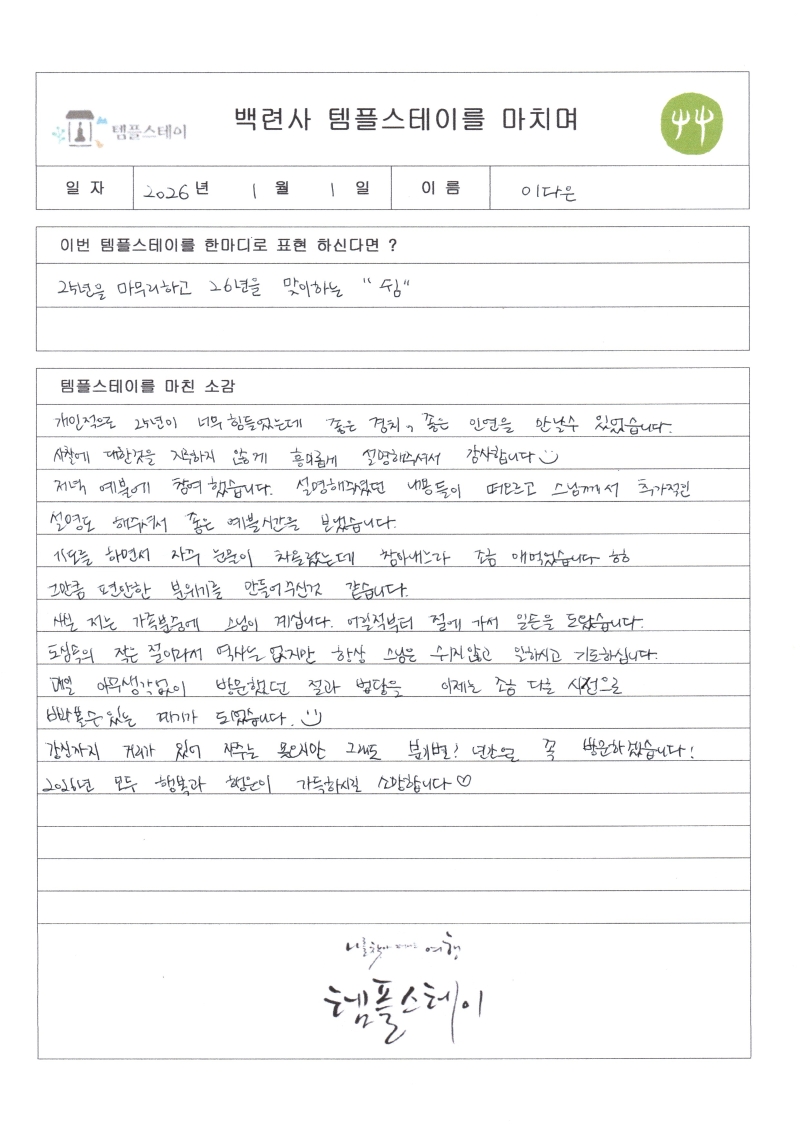 템플스테이
백련사 템플스테이를 마치며
일 자 2026 년 1 월 1 일 이 름 이다은
이번 템플스테이를 한마디로 표현 하신다면 ?
25년을 마무리하고 26년을 맞이하는 " 쉼"
템플스테이를 마친 소감
개인적으로 25년이 너무 힘들었는데 좋은 경치, 좋은 인연을 만날수 있었습니다.
사찰에 대한것을 지루하지 않게 흥미롭게 설명해주셔서 감사합니다
저녁 예불에 참여했습니다. 설명해주셨던 내용들이 떠오르고 스님께서 추가적인
설명도 해주셔서 좋은 예불시간을 보냈습니다.
기도를 하면서 자꾸 눈물이 차올랐는데 참아내느라 조금 애먹었습니다 ㅎㅎ
그만큼 편안한 분위기를 만들어주신것 같습니다.
사실 저는 가족분중에 스님이 계십니다. 어릴적부터 절에 가서 일손을 도왔습니다.
도심속의 작은 절이라서 역사는 없지만 항상 스님은 쉬지않고 일하시고 기도하십니다.
매일 아무생각없이 방문했던 절과 법당을 이제는 조금 다른 시선으로
바라볼수있는 계기가 되었습니다.
강진까지 거리가 있어 자주는 못오지만 그래도 분기별! 년간으로 꼭 방문하겠습니다!
2026년 모두 행복과 행운이 가득하시길 소망합니다♡
나를 찾아 떠나는 여행
템플스테이